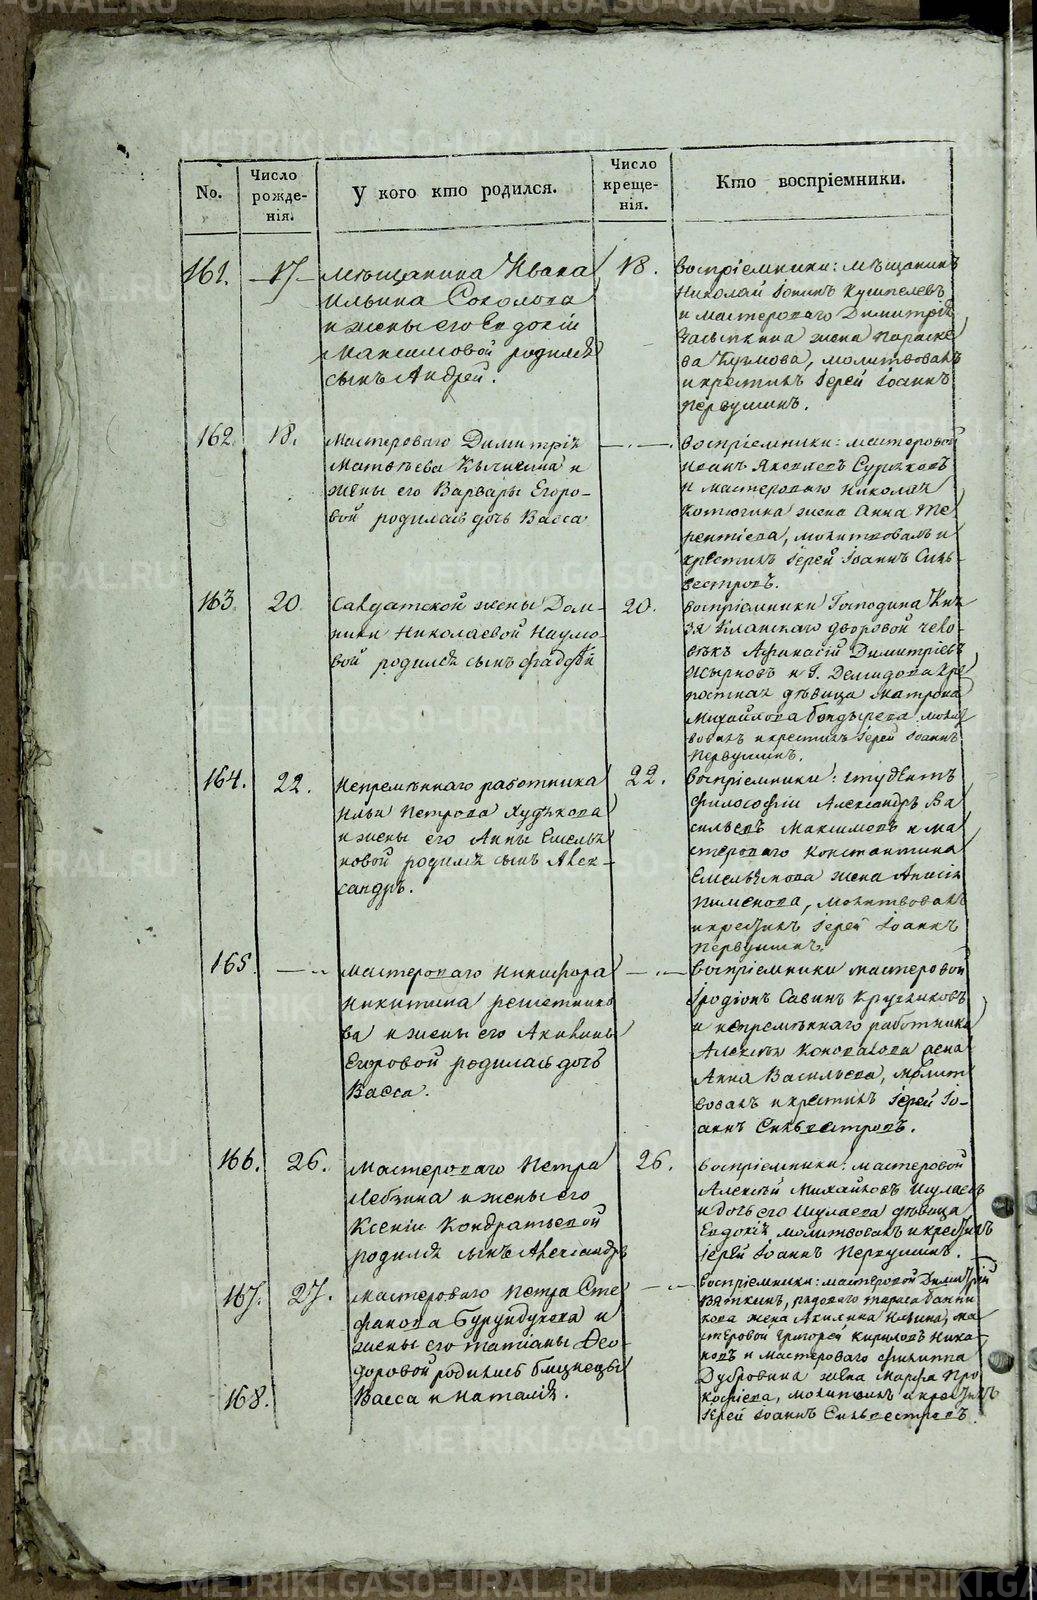 No.
Число рожде-нія.
У кого кто родился.
Число креще-нія.
Кто воспріемники.
161.
17
Мѣщанина Ивана
Ильина Соколова
и жены его Евдокіи
Максимовой родился
сынъ Андрей.
18.
Воспріемники: мѣщанинъ
Николай
и мастероваго Димитрія
жена Параске
ва, молитвовалъ
и крестилъ Іерей Іоаннъ
Первушинъ.
162.
18.
Мастероваго Димитрія
Матвѣева и
жены его Варвары Егоро-
вой родилась дочь Васса
Воспріемники: мастеровой
Иванъ Яковлевъ
и мастероваго Николая
жена Анна Те
рентіева, молитвовалъ и
крестилъ Іерей Іоаннъ Силь-
вестровъ.
163.
20.
Салдатской жены Дом-
ники Николаевой Наумо-
вой родился сынъ Фаддей
20.
Воспріемники Господина Кня
зя дворовой чело-
вѣкъ Афанасій Димитріевъ
и Г. Демидова кре
постная дѣвица Матрона
Михайлова молит
вовалъ и крестилъ Іерей Іоаннъ
Первушинъ.
164.
22.
Непремѣннаго работника
Ильи Петрова Худякова
и жены его Анны Емелья
новой родился сынъ Алек-
сандръ.
22.
Воспріемники: студентъ
философіи Александръ Ва
сильевъ Максимовъ и ма
стероваго Константина
Емельянова жена Анисія
Пименова, молитвовалъ
и крестилъ Іерей Іоаннъ
Первушинъ.
165.
Мастероваго Никифора
Никитина решетнико
ва и жены его Акилины
Егоровой родилась дочь
Васса.
Воспріемники мастеровой
Іродіонъ Савинъ Кругликовъ
и непремѣннаго работника
Алексѣя Коновалова жена
Анна Васильева, молит
вовалъ и крестилъ Іерей Іо-
аннъ Сильвестровъ.
166.
26.
Мастероваго Петра
и жены его
Ксеніи Кондратьевой
родился сынъ Александръ
26.
Воспріемники: мастеровой
Алексѣй Михайловъ Шулаевъ
и дочь его Шулаева дѣвица
Евдокія, молитвовалъ и крестилъ
Іерей Іоаннъ Первушинъ.
167.
27.
Мастероваго Петра Сте
фанова Бурундукова и
жены его Татіаны Фео-
доровой родились близнецы
168.
Васса и Наталія.
Воспріемники: мастеровой Димитрій
Вяткинъ, рядоваго Тараса Банни
кова жена Акилина Ильина, ма
стеровой Григорей Кириловъ Ника
новъ и мастероваго Филиппа
Дубровина жена Марфа Про
кофіева, молитвов. и крестилъ
Іерей Іоаннъ Сильвестровъ.
METRIKI.GASO-URAL.RU